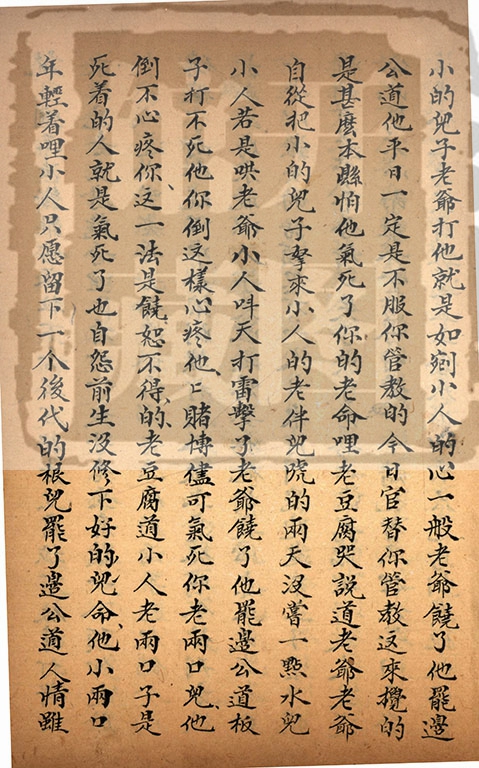 小的兒子老爺打他就是如剜小人的心一般老爺饒了他罷邊
公道他平日一定是不服你管教的今日官替你管教这來攪的
是甚麽本縣怕他氣死了你的老命哩老豆腐哭說道老爺老爺
自從把小的兒子拏來小人的老伴兒唬的兩天没嘗一㸃水兒
小人若是哄老爺小人呌天打雷擊了老爺饒了他罷邊公道板
子打不死他你倒这樣心疼他他賭博儘可氣死你老兩口兒他
倒不心疼你这一法是饒恕不得的老豆腐道小人老兩口子是
死着的人就是氣死了也自怨前生没修下好的兒命他小兩口
年輕着哩小人只愿留下一个後代的根兒罷了邊公道人情雖